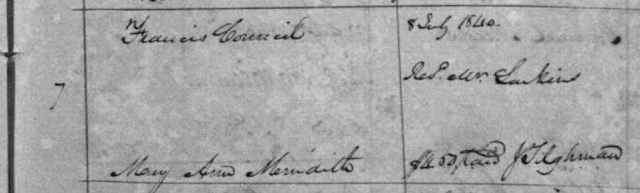 n
Francis Council 8 July 1840.
Revd. Mr. Larkins
7
Mary Ann Meredith $4 50 paid J Tilghman